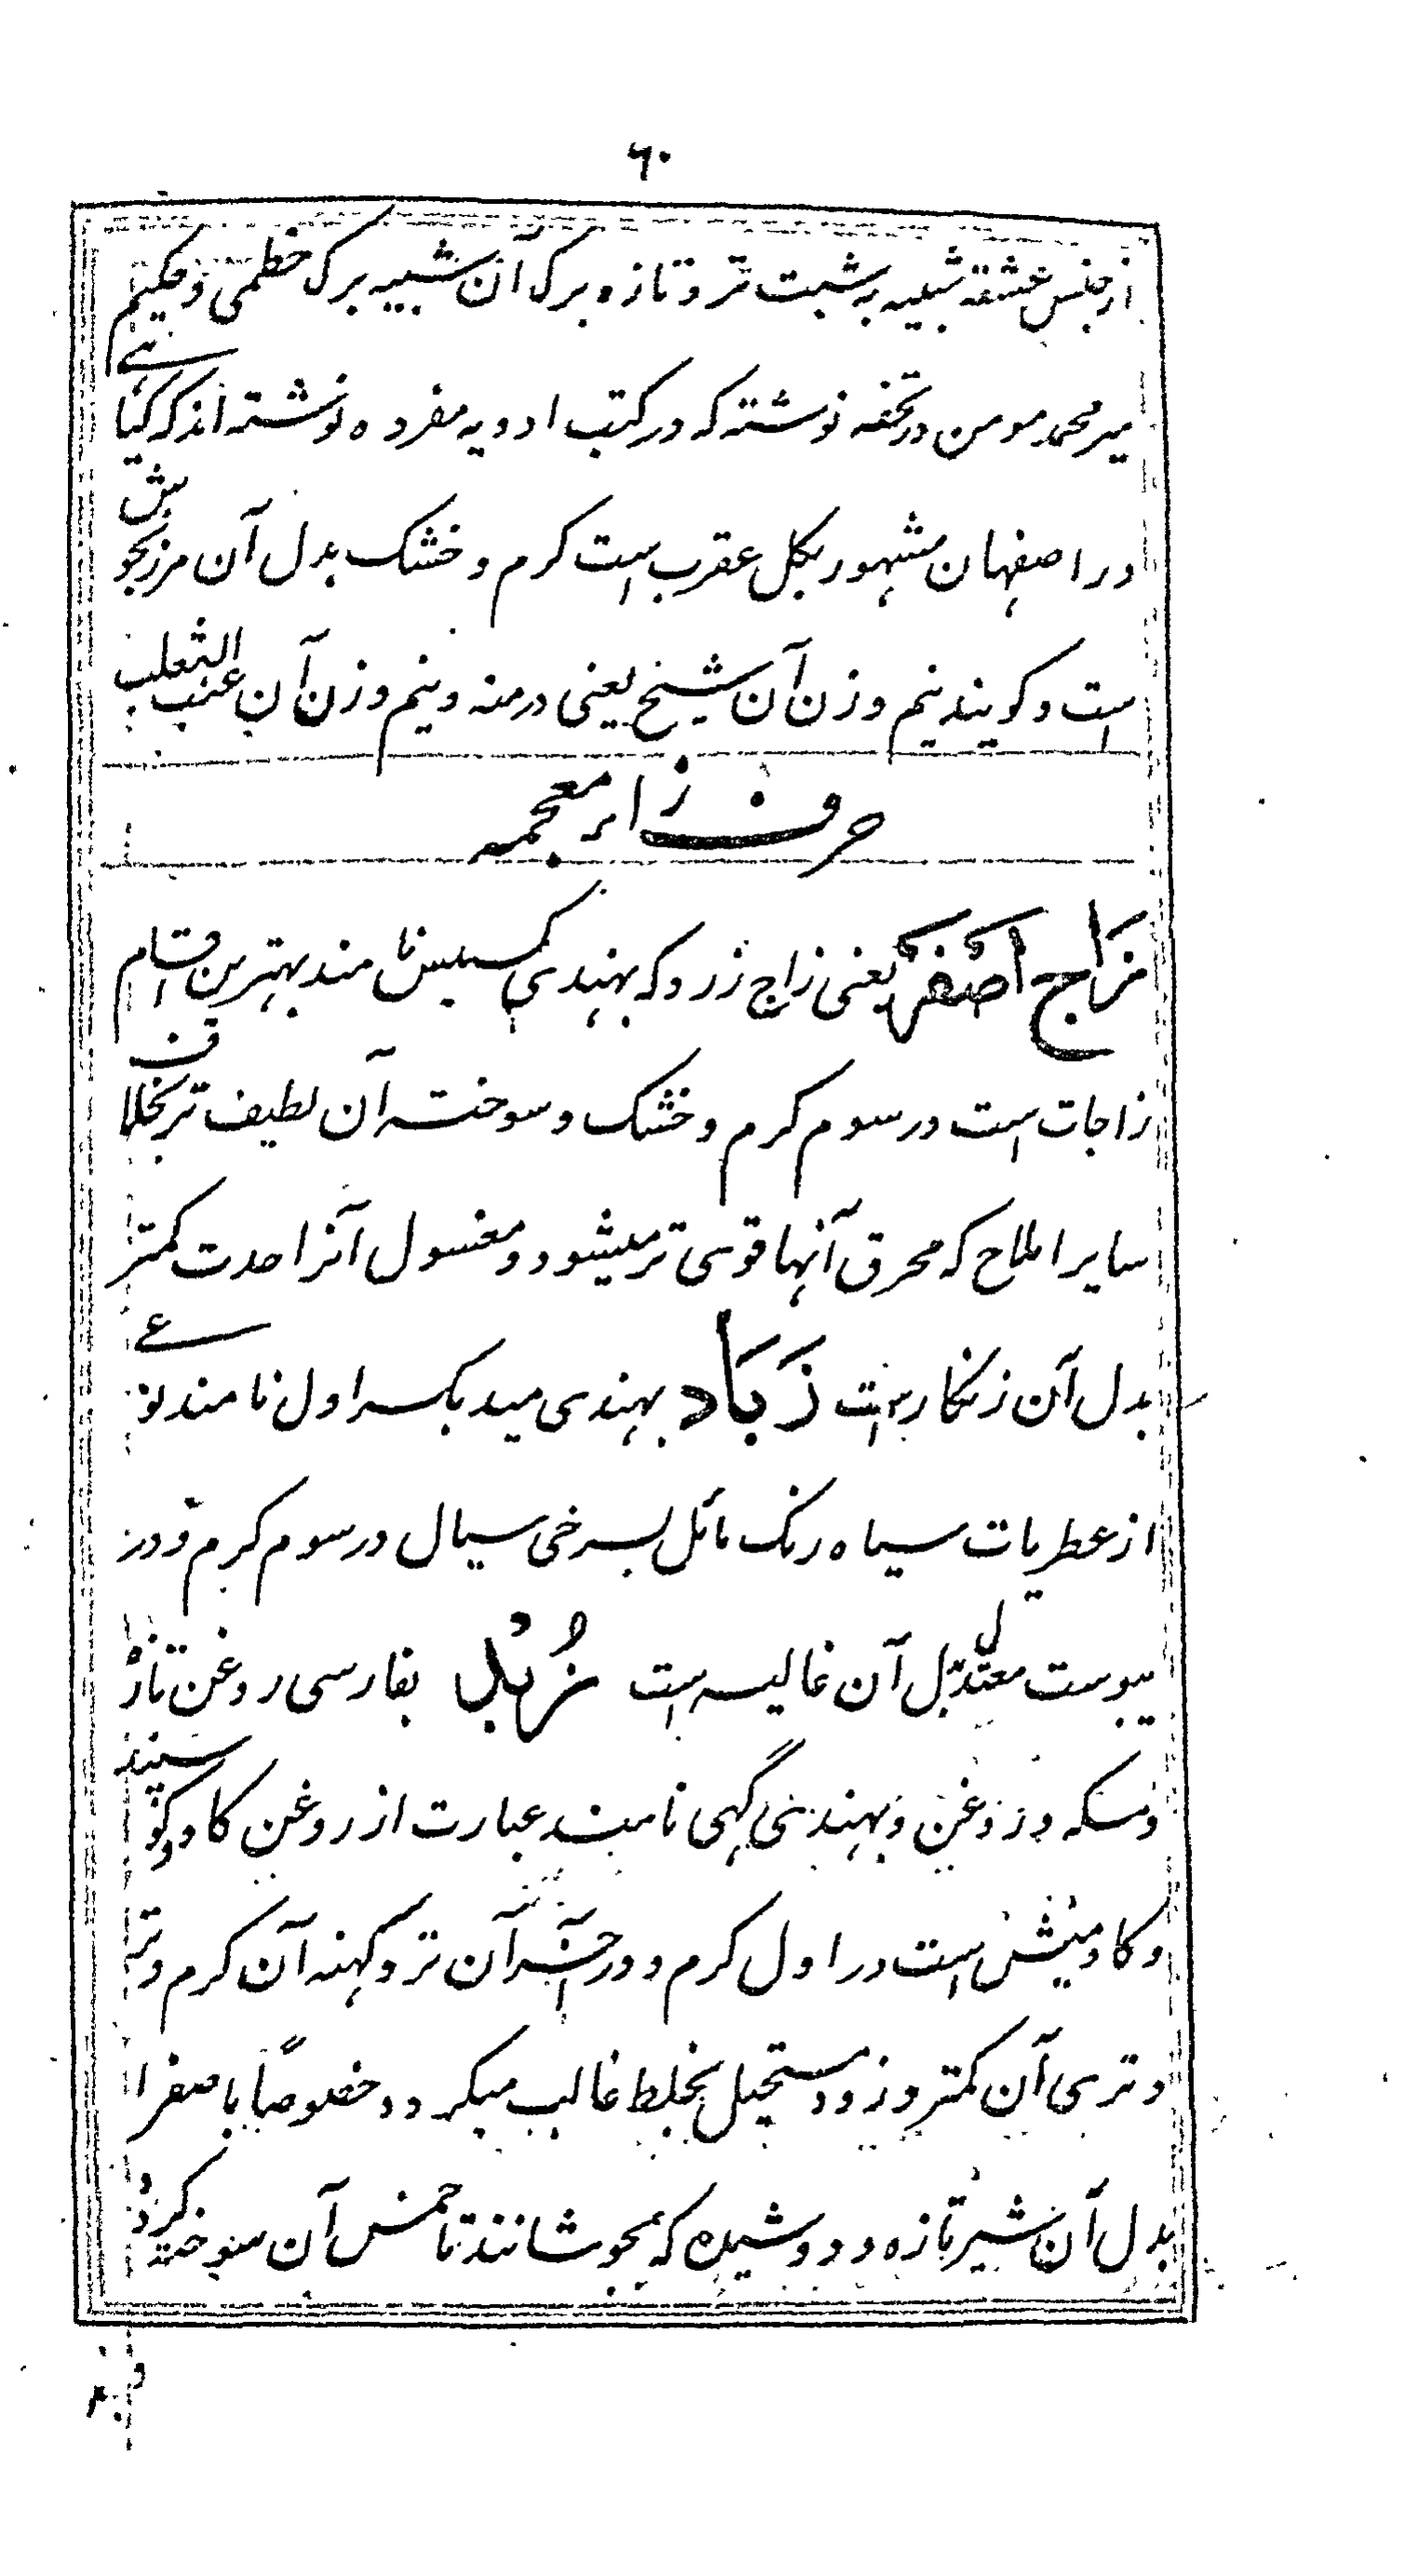 ۶۰
از جنس عشقه شبیه به شبت تر و تازه برک آن شبیه برک خطمی و حکیم
میر محمد مومن در تحفه نوشته که در کتب ادویه مفرده نوشته اند که کیاہے
در اصفهان مشهور بکل عقرب است کرم و خشک بدل آن مرزنجوش
است و کویند نیم وزن آن شیخ یعنی درمنه و نیم وزن آن عنب الثعلب
حرف زاء معجمه
زَاج اَصْفَر یعنی زاج زرد که بهندی کسیس نامند بهترین اقسام
زاجات است در سوم کرم و خشک و سوخته آن لطیف تر بخلاف
سایر املاح که محرق آنها قوی تر میشود و مغسول آنرا حدت کمتر
بدل آن زنکار است زَبَاد بهندی مید بکسر اول نامند نوعے
از عطریات سیاه رنک مائل بسرخی سیال در سوم کرم و در
یبوست معتدل بدل آن غالیه است زُبْد بفارسی روغن تازه
و مسکه و روغن و بهندی گهی نامند عبارت از روغن کاو و کوسپند
و کاومیش است در اول کرم و در آخر آن تر و کهنه آن کرم و تر
و تری آن کمتر و زود مستحیل بخلط غالب میکردد خصوصاً با صفرا
بدل آن شیر تازه دوشیده که بجوشانند تا حمض آن سوخته کردد